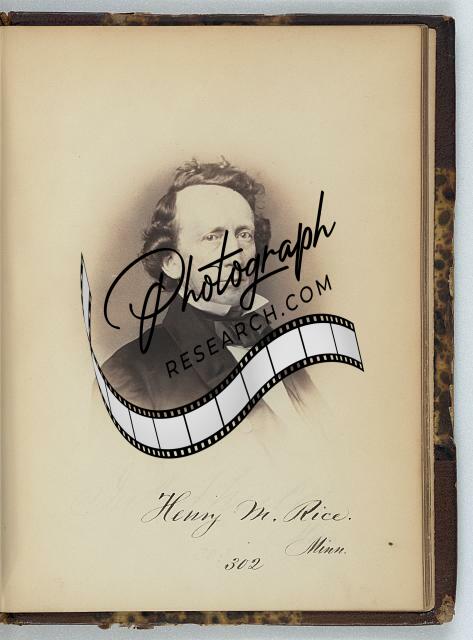 Photograph
RESEARCH.COM
Henry M. Rice.
Minn.
302